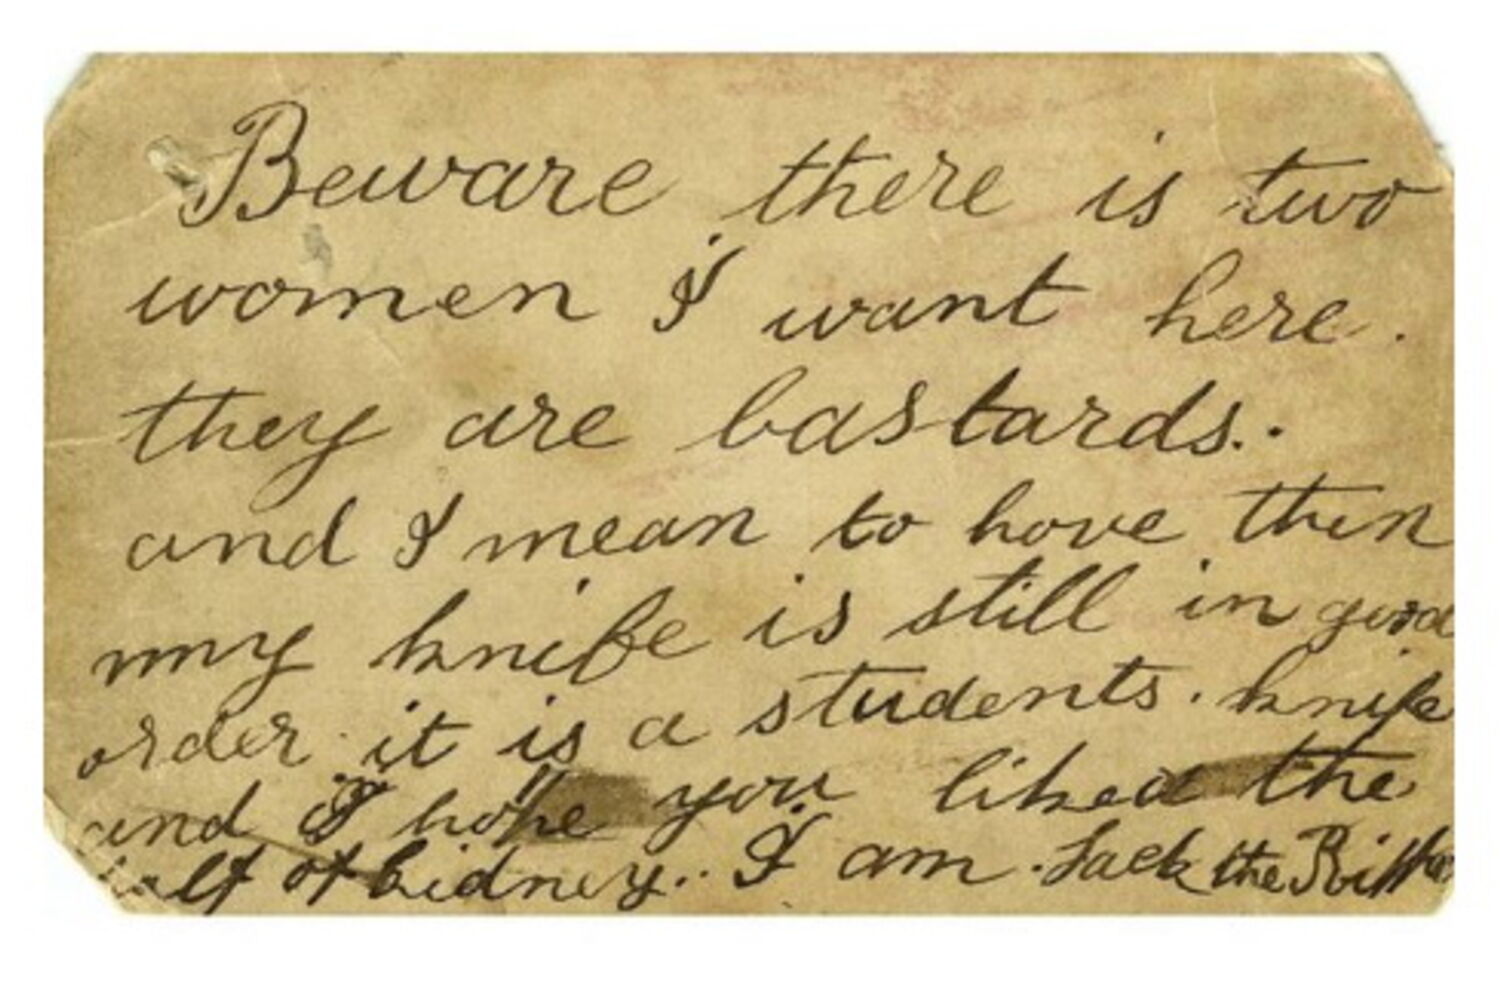 Beware there is two
women I want here.
they are bastards..
and I mean to hove then
my knife is still in good
order it is a students. knife
and I hope you liked the
half of kidney.. I am. Jack the Ripper